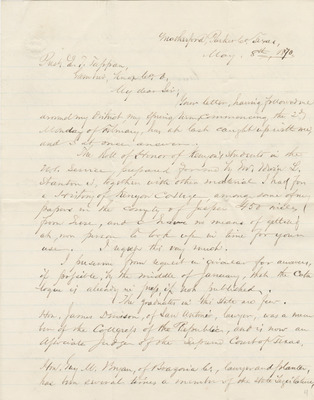 Weatherford, Parker Co. Texas,
May 8th, 1870.
Prof. E. T. Tappan,
Gambier, Knox Co. O.
My dear Sir,
Your letter, having followed me
around my District my Spring term, commencing the 2d
Monday of February, has at last caught up with me,
and I at once answer.
The Roll of Honor of Kenyon's Students in the
U.S. Service prepared for me by Mr. Wm.
Stanton &c, together with other material I had for
a History of Kenyon College, are among some other
papers in the County of Jasper 400 miles
from here, and I have no means of getting
at, or person to look up in time for your
use. I regret this very much.
I presume from request in circular for answer,
if possible, by the middle of January, that the Cata-
logue is already in press, if not published.
The graduates in this state are few.
Hon. James Denison, of San Antonio, lawyer, was a mem-
ber of the Congress of the Republic, and is now an
Associate Judge of the Supreme Court of Texas.
Hon. Guy M. Bryan, of Brazoria Co., lawyer and planter,
has been several times a member of the State Legislature,